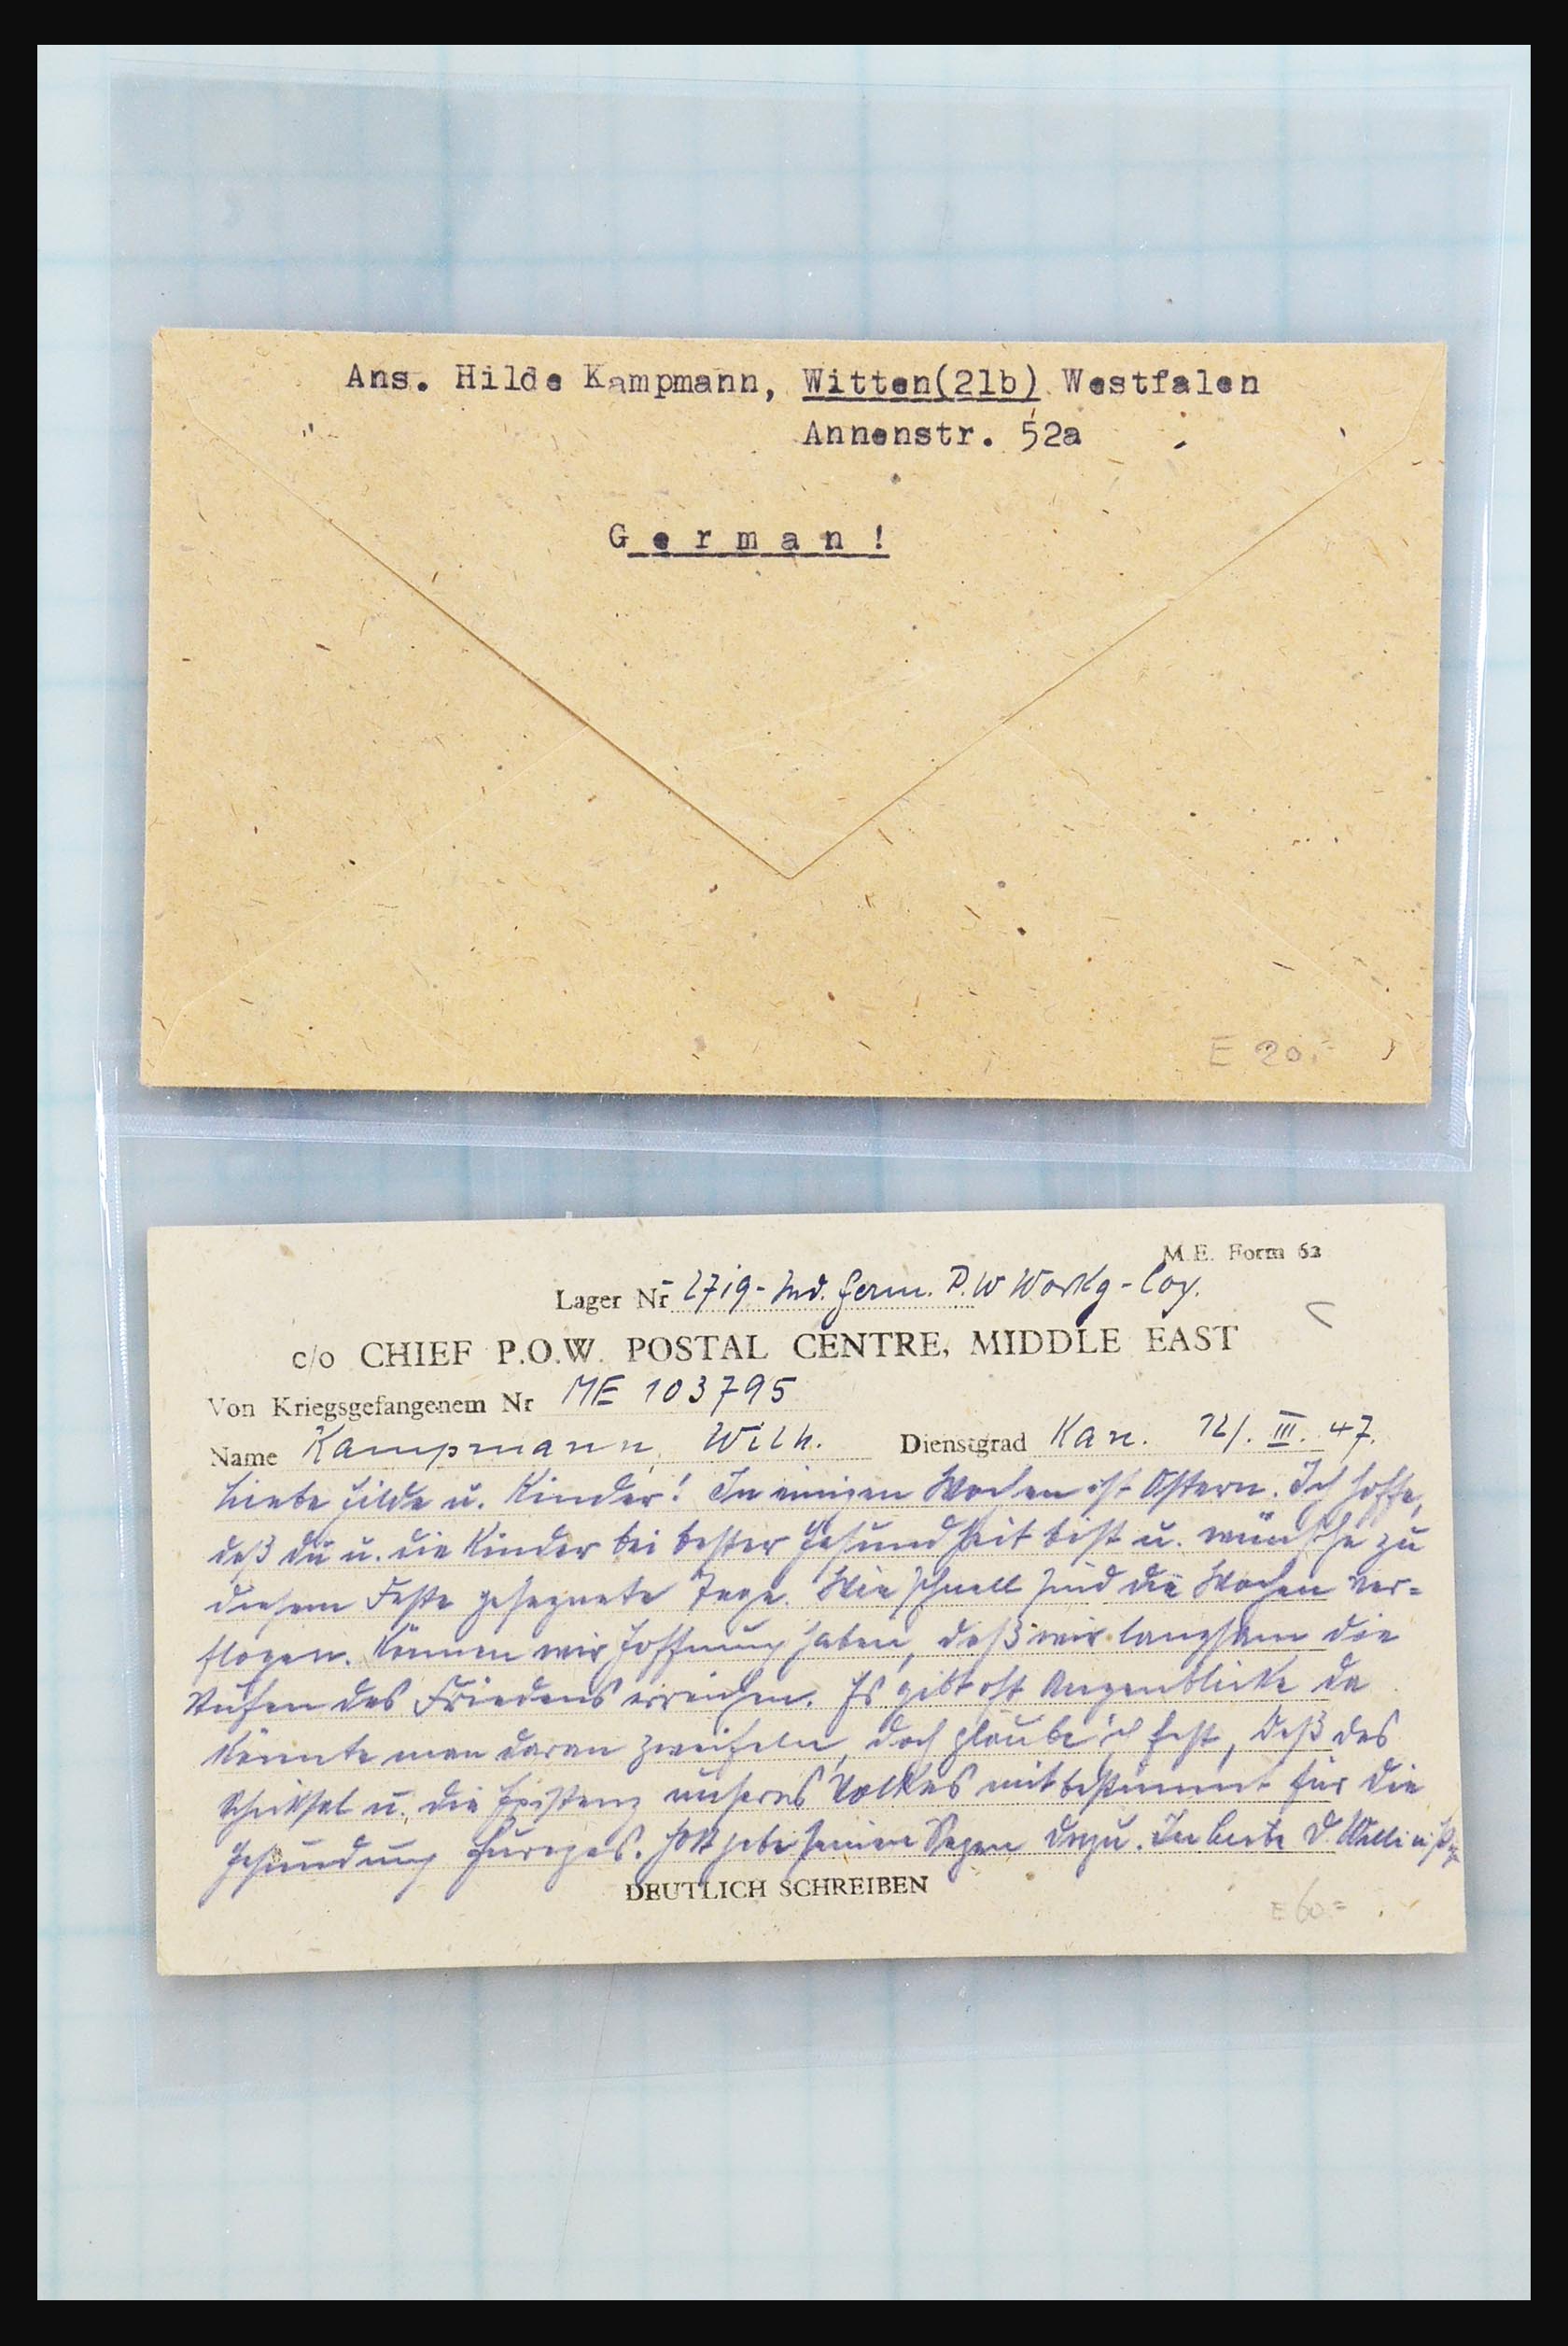 Ans. Hilde Kampmann, Witten(21b) Westfalen
Annenstr. 52a
G e r m a n !
E 20.-
M.E. Form 62
Lager Nr 2719 - Ind. Germ. P.W Workg - Coy.
c/o CHIEF P.O.W. POSTAL CENTRE, MIDDLE EAST
Von Kriegsgefangenem Nr ME 103795
Name Kampmann, Wilh. Dienstgrad Kan. 12/. III. 47.
Liebe Hilde u. Kinder! In einigen Wochen ist Ostern. Ich hoffe,
daß du u. die Kinder bei bester Gesundheit bist u. wünsche zu
diesem Feste gesegnete Tage. Wie schnell sind die Wochen ver=
flogen. Können wir Hoffnung haben, daß wir langsam die
Stufen des Friedens erreichen. Es gibt oft Augenblicke da
könnte man daran zweifeln, doch glaube ich fest, daß das
Schicksal u. die Existenz unseres Volkes mitbestimmt für die
Gesundung Europas. Gott gebe seinen Segen dazu. In Liebe D. Willi
DEUTLICH SCHREIBEN
E 60.=